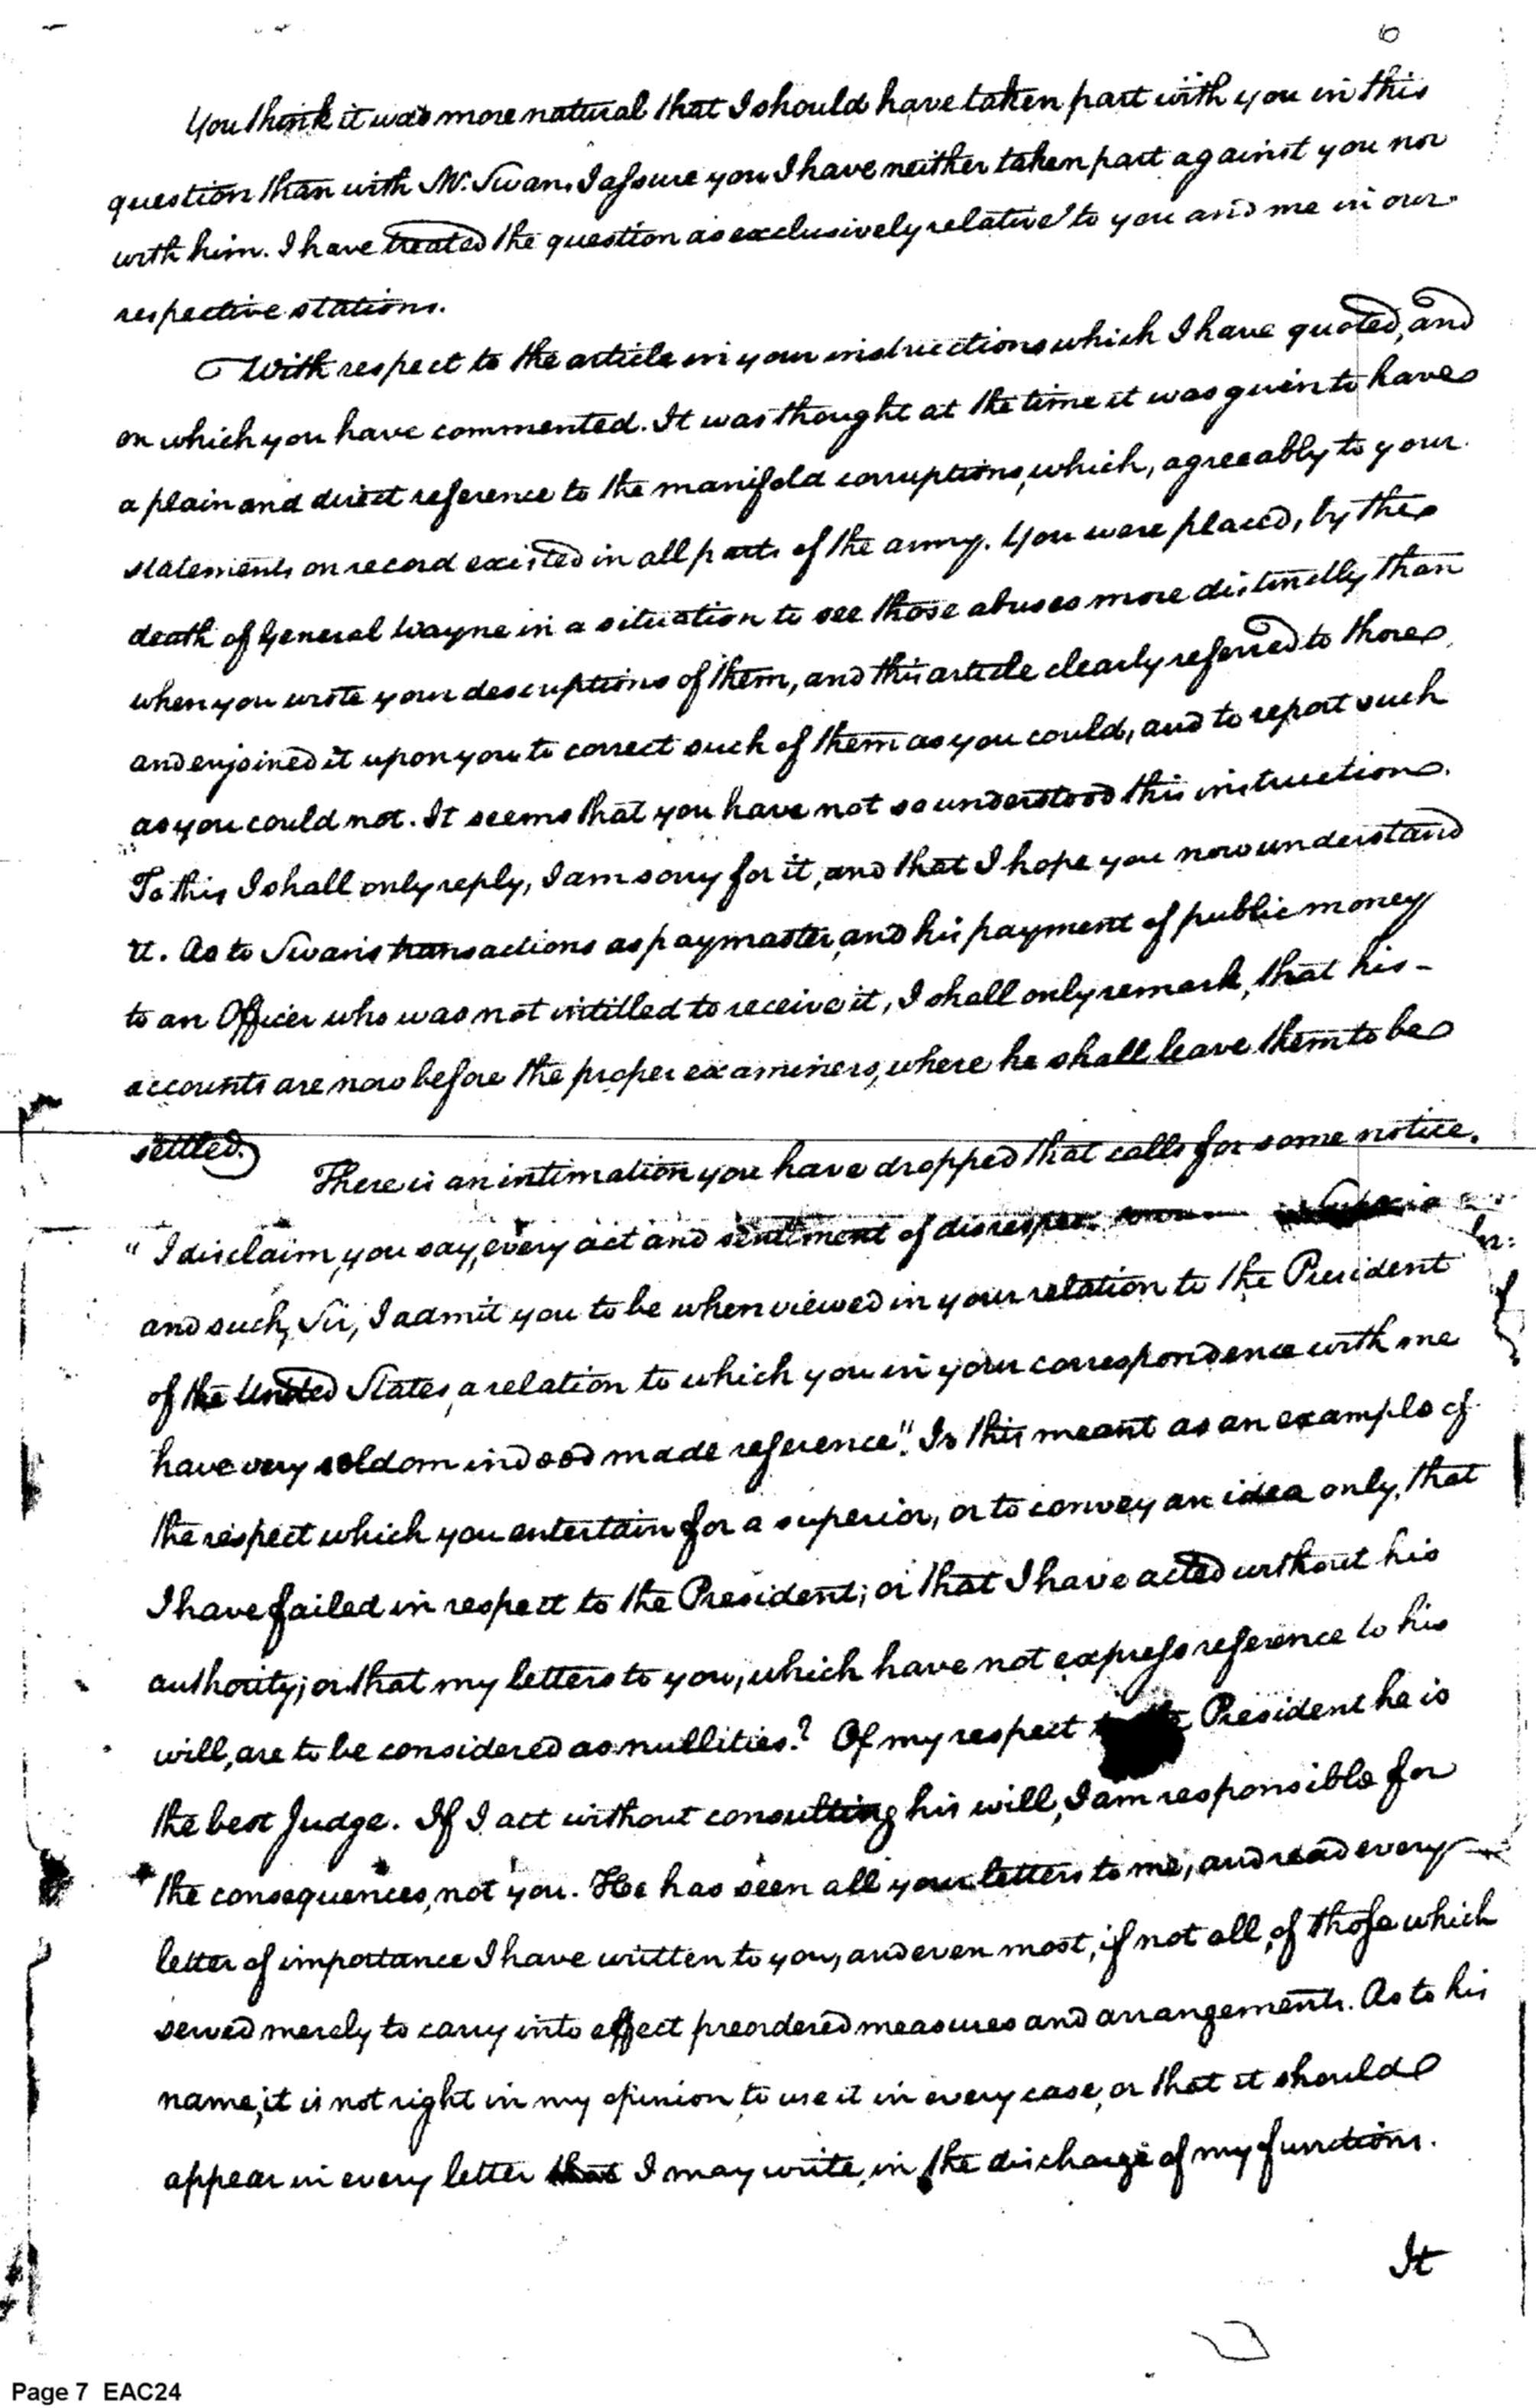 6
You think it was more natural that I should have taken part with you in this
question than with Mr. Swan. I assure you I have neither taken part against you nor
with him. I have treated the question as exclusively relative to you and me in our
respective stations.
With respect to the article in your instructions which I have quoted, and
on which you have commented. It was thought at the time it was given to have
a plain and direct reference to the manifold corruptions, which, agreeably to your
statements on record existed in all parts of the army. You were placed, by the
death of General Wayne in a situation to see those abuses more distinctly than
when you wrote your descriptions of them, and this article clearly referred to those
and enjoined it upon you to correct such of them as you could, and to report such
as you could not. It seems that you have not so understood this instruction.
To this I shall only reply, I am sorry for it, and that I hope you now understand
it. As to Swan's transactions as paymaster, and his payment of public money
to an Officer who was not intitled to receive it, I shall only remark, that his -
accounts are now before the proper examiners, where he shall leave them to be
settled.
There is an intimation you have dropped that calls for some notice.
"I disclaim, you say, every act and sentiment of disrespect
and such, Sir, I admit you to be when viewed in your relation to the President
of the United States, a relation to which you in your correspondence with me
have very seldom indeed made reference". Is this meant as an example of
the respect which you entertain for a superior, or to convey an idea only, that
I have failed in respect to the President; or that I have acted without his
authority; or that my letters to you, which have not express reference to his
will, are to be considered as nullities? Of my respect President he is
the best Judge. If I act without consulting his will, I am responsible for
the consequences, not you. He has seen all your letters to me, and read every
letter of importance I have written to you, and even most, if not all, of those which
served merely to carry into effect preordered measures and arrangements. As to his
name, it is not right in my opinion to use it in every case, or that it should
appear in every letter that I may write, in the discharge of my functions.
It
Page 7 EAC24